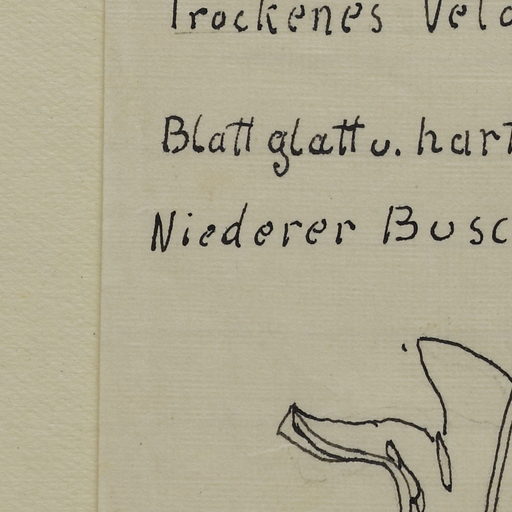 Trockenes Vel
Blatt glatt u. hart
Niederer Busc